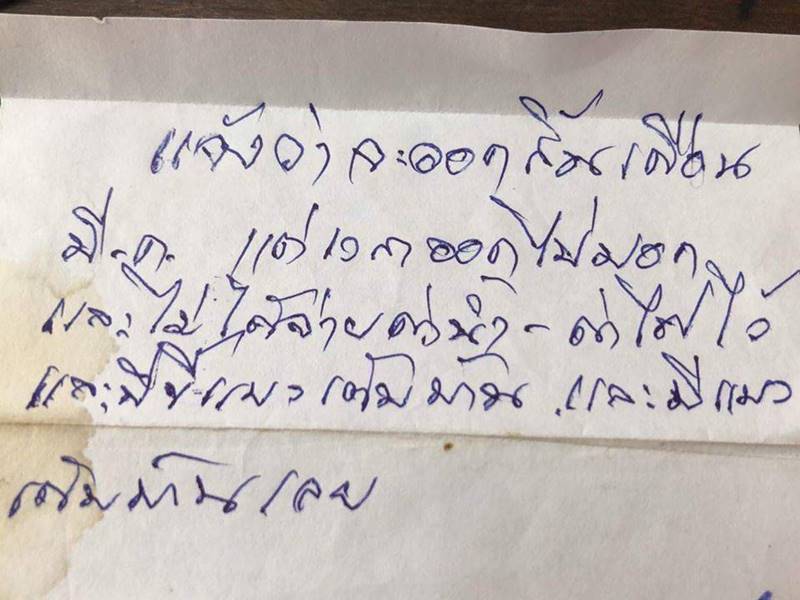 แจ้งว่าจะออกสิ้นเดือน
มี.ค. แต่เวลาออกไม่บอก
และไม่ได้จ่ายค่าน้ำ-ค่าไฟไว้
และมีขี้แมวเต็มบ้าน และมีแมว
เต็มบ้านเลย